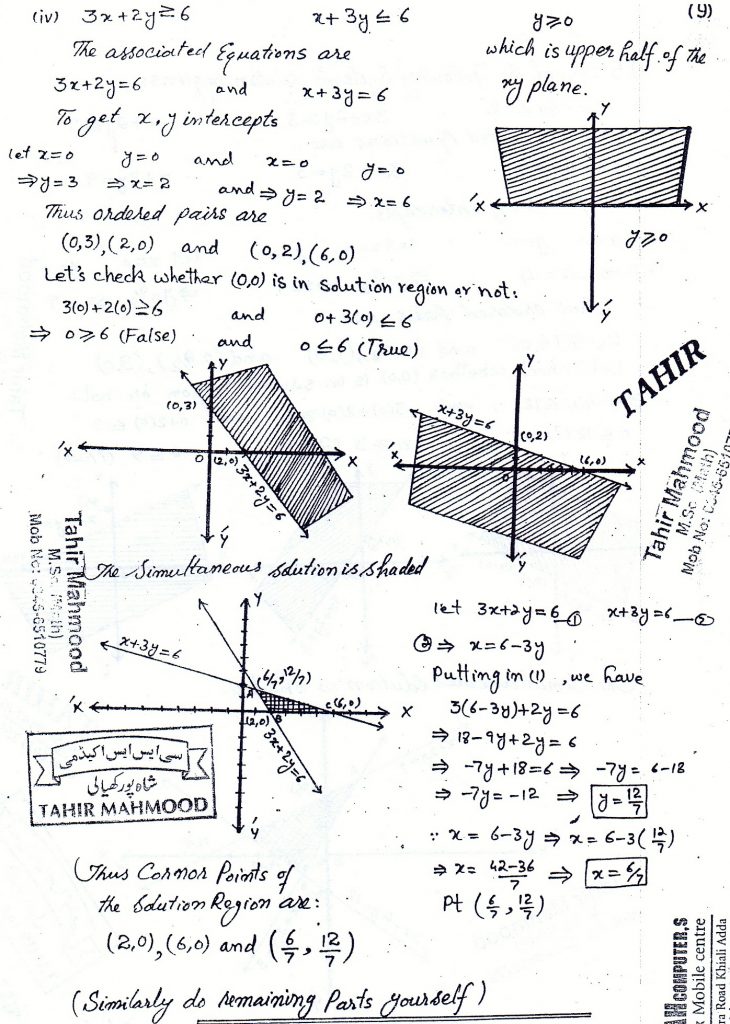 (9)
(iv) 3x+2y≥6 x+3y≤6 y≥0
The associated Equations are
3x+2y=6 and x+3y=6
To get x,y intercepts
let x=0 y=0 and x=0 y=0
⇒y=3 ⇒x=2 and ⇒y=2 ⇒x=6
Thus ordered pairs are
(0,3),(2,0) and (0,2),(6,0)
Let's check whether (0,0) is in solution region or not:
3(0)+2(0)≥6 and 0+3(0)≤6
⇒ 0≥6 (False) and 0≤6 (True)
which is upper half of the
xy plane.
Y
'X X
y≥0
'Y
Y
(0,3)
'X O (2,0) X
3x+2y=6
'Y
Y
x+3y=6
(0,2)
'X O (6,0) X
'Y
TAHIR
Tahir Mahmood
M.Sc. (Math)
Tahir Mahmood
M.Sc. (Math)
Mob No: 0346-6510779
The Simultaneous solution is shaded
Y
x+3y=6
(6/7,12/7)
A
'X (2,0) B C(6,0) X
3x+2y=6
'Y
سی ایس ایس اکیڈمی
شاہ پور کھیالی
TAHIR MAHMOOD
let 3x+2y=6 —① x+3y=6 —②
② ⇒ x=6-3y
Putting in (1), we have
3(6-3y)+2y=6
⇒ 18-9y+2y=6
⇒ -7y+18=6 ⇒ -7y=6-18
⇒ -7y=-12 ⇒ y=12/7
∵ x=6-3y ⇒ x=6-3(12/7)
⇒ x=42-36/7 ⇒ x=6/7
Pt (6/7, 12/7)
Thus Cornor Points of
the Solution Region are:
(2,0),(6,0) and (6/7, 12/7)
(Similarly do remaining Parts yourself)
COMPUTER,S
Mobile centre
ra Road Khiali Adda